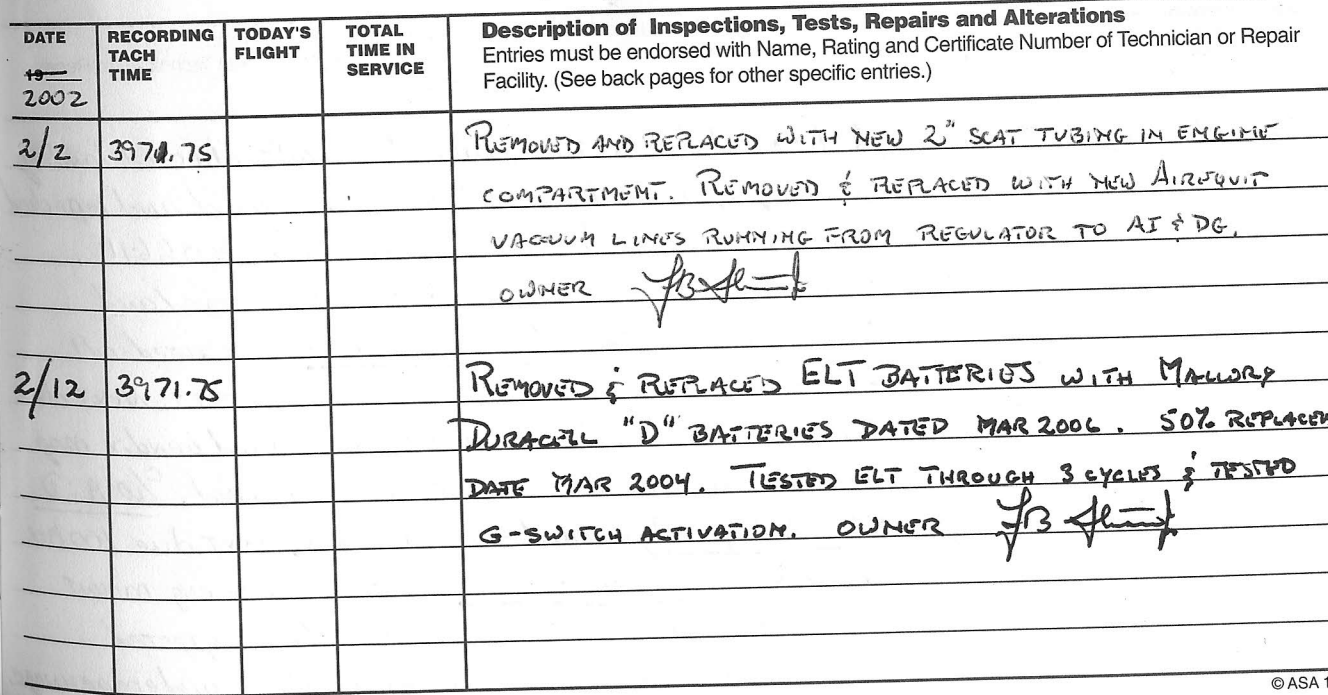 DATE RECORDING TACH TIME TODAY'S FLIGHT TOTAL TIME IN SERVICE Description of Inspections, Tests, Repairs and Alterations
Entries must be endorsed with Name, Rating and Certificate Number of Technician or Repair
Facility. (See back pages for other specific entries.)
19
2002
2/2 3971.75 REMOVED AND REPLACED WITH NEW 2" SCAT TUBING IN ENGINE
COMPARTMENT. REMOVED & REPLACED WITH NEW AIREQUIT
VACUUM LINES RUNNING FROM REGULATOR TO AI & DG.
OWNER
2/12 3971.75 REMOVED & REPLACED ELT BATTERIES WITH MALLORY
DURACELL "D" BATTERIES DATED MAR 2006. 50% REPLACEM
DATE MAR 2004. TESTED ELT THROUGH 3 CYCLES & TESTED
G-SWITCH ACTIVATION. OWNER
© ASA 1